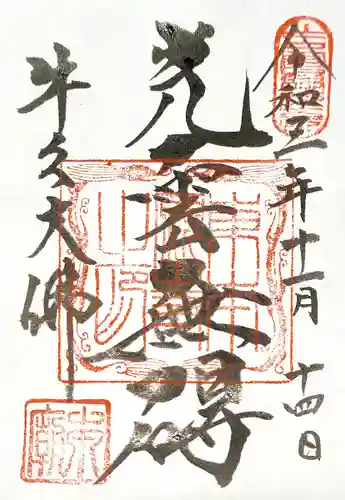 令和三年十一月十四日
光雲無碍
牛久大佛